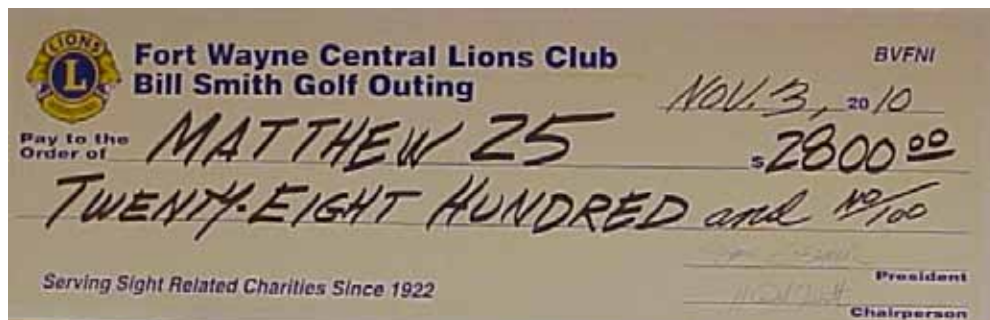 LIONS
L
Fort Wayne Central Lions Club
BVFNI
Bill Smith Golf Outing
NOV. 3, 2010
Pay to the
Order of MATTHEW 25 $2800 00
TWENTY-EIGHT HUNDRED and NO/100
President
Serving Sight Related Charities Since 1922
Chairperson